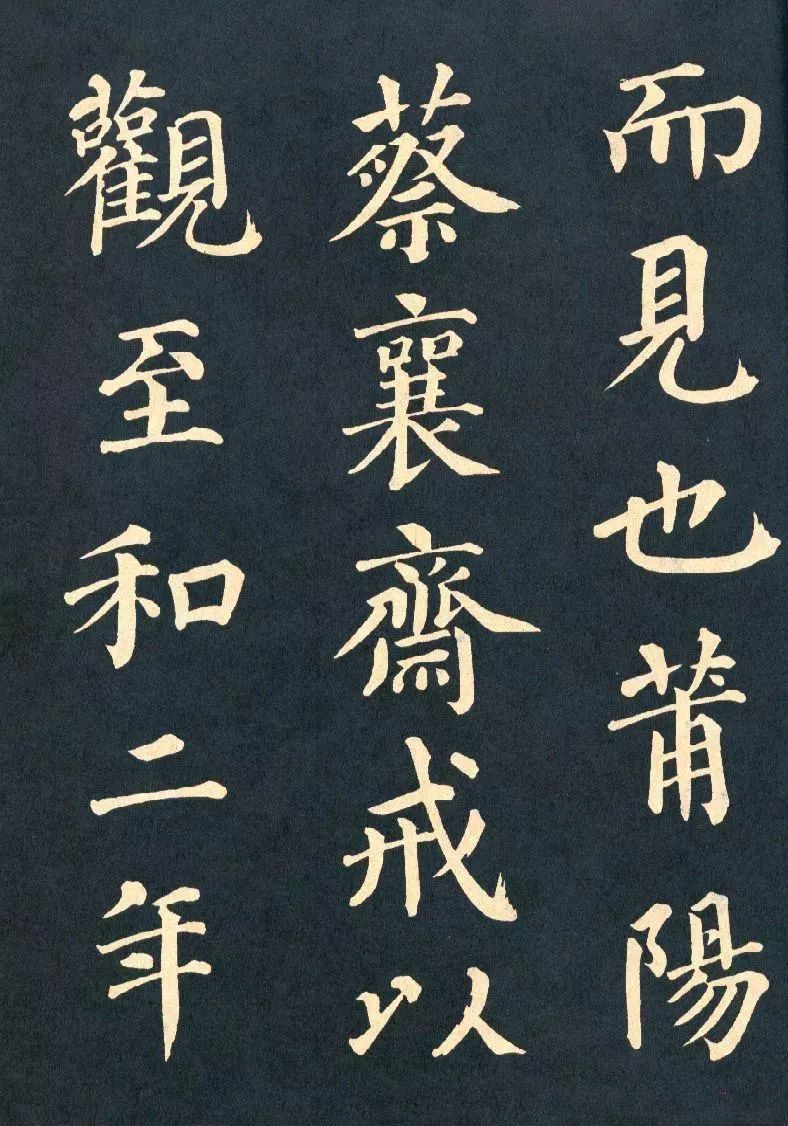 而見也莆陽
蔡襄齋戒以
觀至和二年